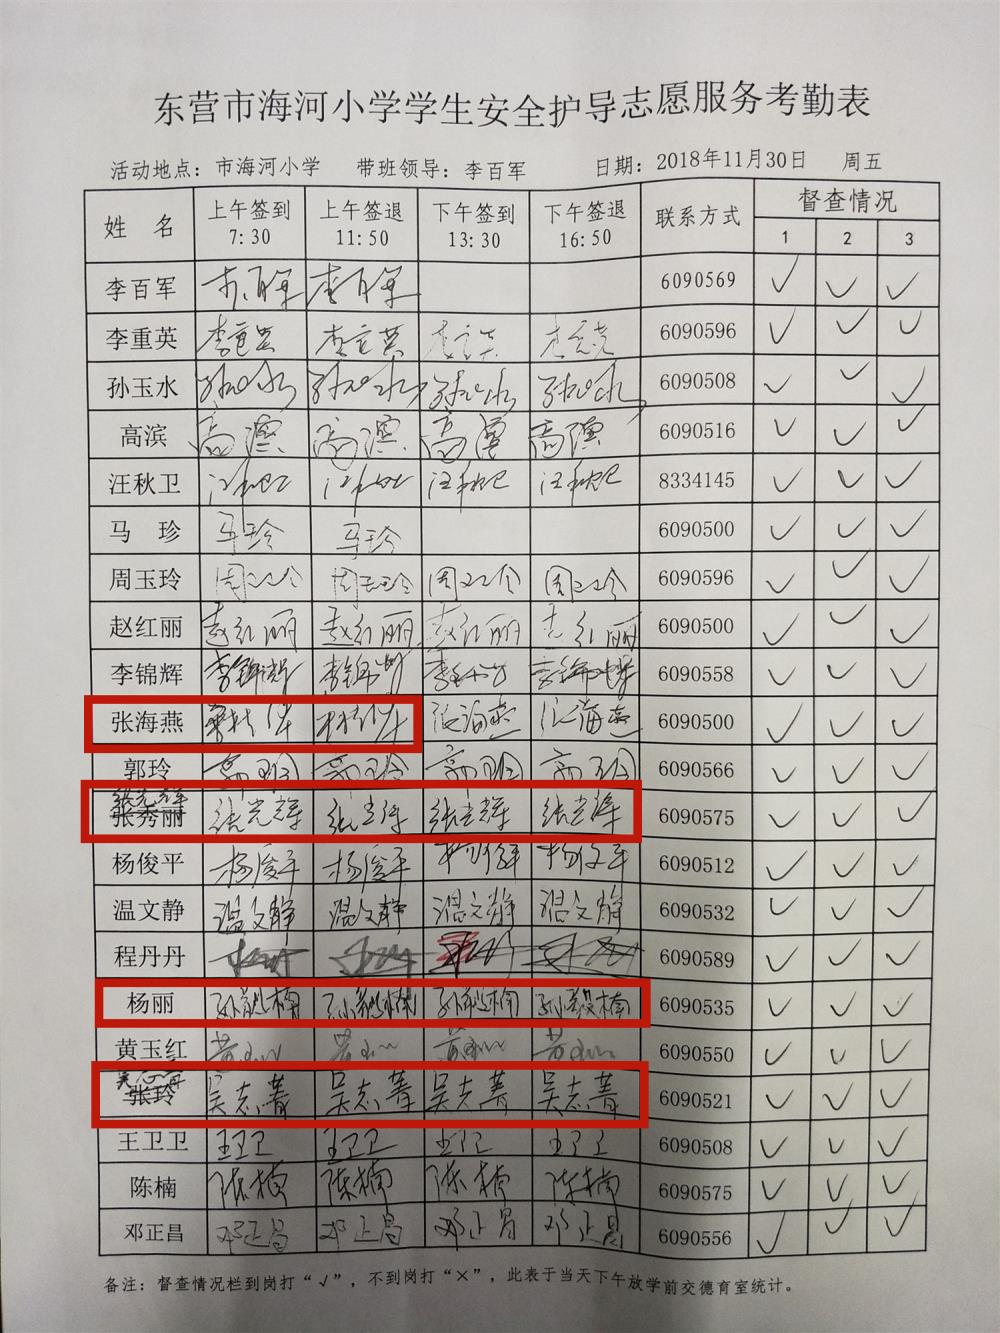 东营市海河小学学生安全护导志愿服务考勤表
活动地点：市海河小学 带班领导：李百军 日期：2018年11月30日 周五
姓 名 上午签到 7:30 上午签退 11:50 下午签到 13:30 下午签退 16:50 联系方式 督查情况
1 2 3
李百军 李百军 李百军 6090569 ✓ ✓ ✓
李重英 李重英 李重英 李重英 李重英 6090596 ✓ ✓ ✓
孙玉水 孙玉水 孙玉水 孙玉水 孙玉水 6090508 ✓ ✓ ✓
高滨 高滨 高滨 高滨 高滨 6090516 ✓ ✓ ✓
汪秋卫 汪秋卫 汪秋卫 汪秋卫 汪秋卫 8334145 ✓ ✓ ✓
马 珍 马珍 马珍 6090500 ✓ ✓ ✓
周玉玲 周玉玲 周玉玲 周玉玲 周玉玲 6090596 ✓ ✓ ✓
赵红丽 赵红丽 赵红丽 赵红丽 赵红丽 6090500 ✓ ✓ ✓
李锦辉 李锦辉 李锦辉 李锦辉 李锦辉 6090558 ✓ ✓ ✓
张海燕 张海燕 张海燕 6090500 ✓ ✓ ✓
郭玲 郭玲 郭玲 郭玲 郭玲 6090566 ✓ ✓ ✓
张光辉
张秀丽 张光辉 张光辉 张光辉 张光辉 6090575 ✓ ✓ ✓
杨俊平 杨俊平 杨俊平 杨俊平 杨俊平 6090512 ✓ ✓ ✓
温文静 温文静 温文静 温文静 温文静 6090532 ✓ ✓ ✓
程丹丹 6090589 ✓ ✓ ✓
杨丽 6090535 ✓ ✓ ✓
黄玉红 黄玉红 黄玉红 黄玉红 黄玉红 6090550 ✓ ✓ ✓
吴志菁
张玲 吴志菁 吴志菁 吴志菁 吴志菁 6090521 ✓ ✓ ✓
王卫卫 王卫卫 王卫卫 王卫卫 王卫卫 6090508 ✓ ✓ ✓
陈楠 陈楠 陈楠 陈楠 陈楠 6090575 ✓ ✓ ✓
邓正昌 邓正昌 邓正昌 邓正昌 邓正昌 6090556 ✓ ✓ ✓
备注：督查情况栏到岗打“√”，不到岗打“×”，此表于当天下午放学前交德育室统计。